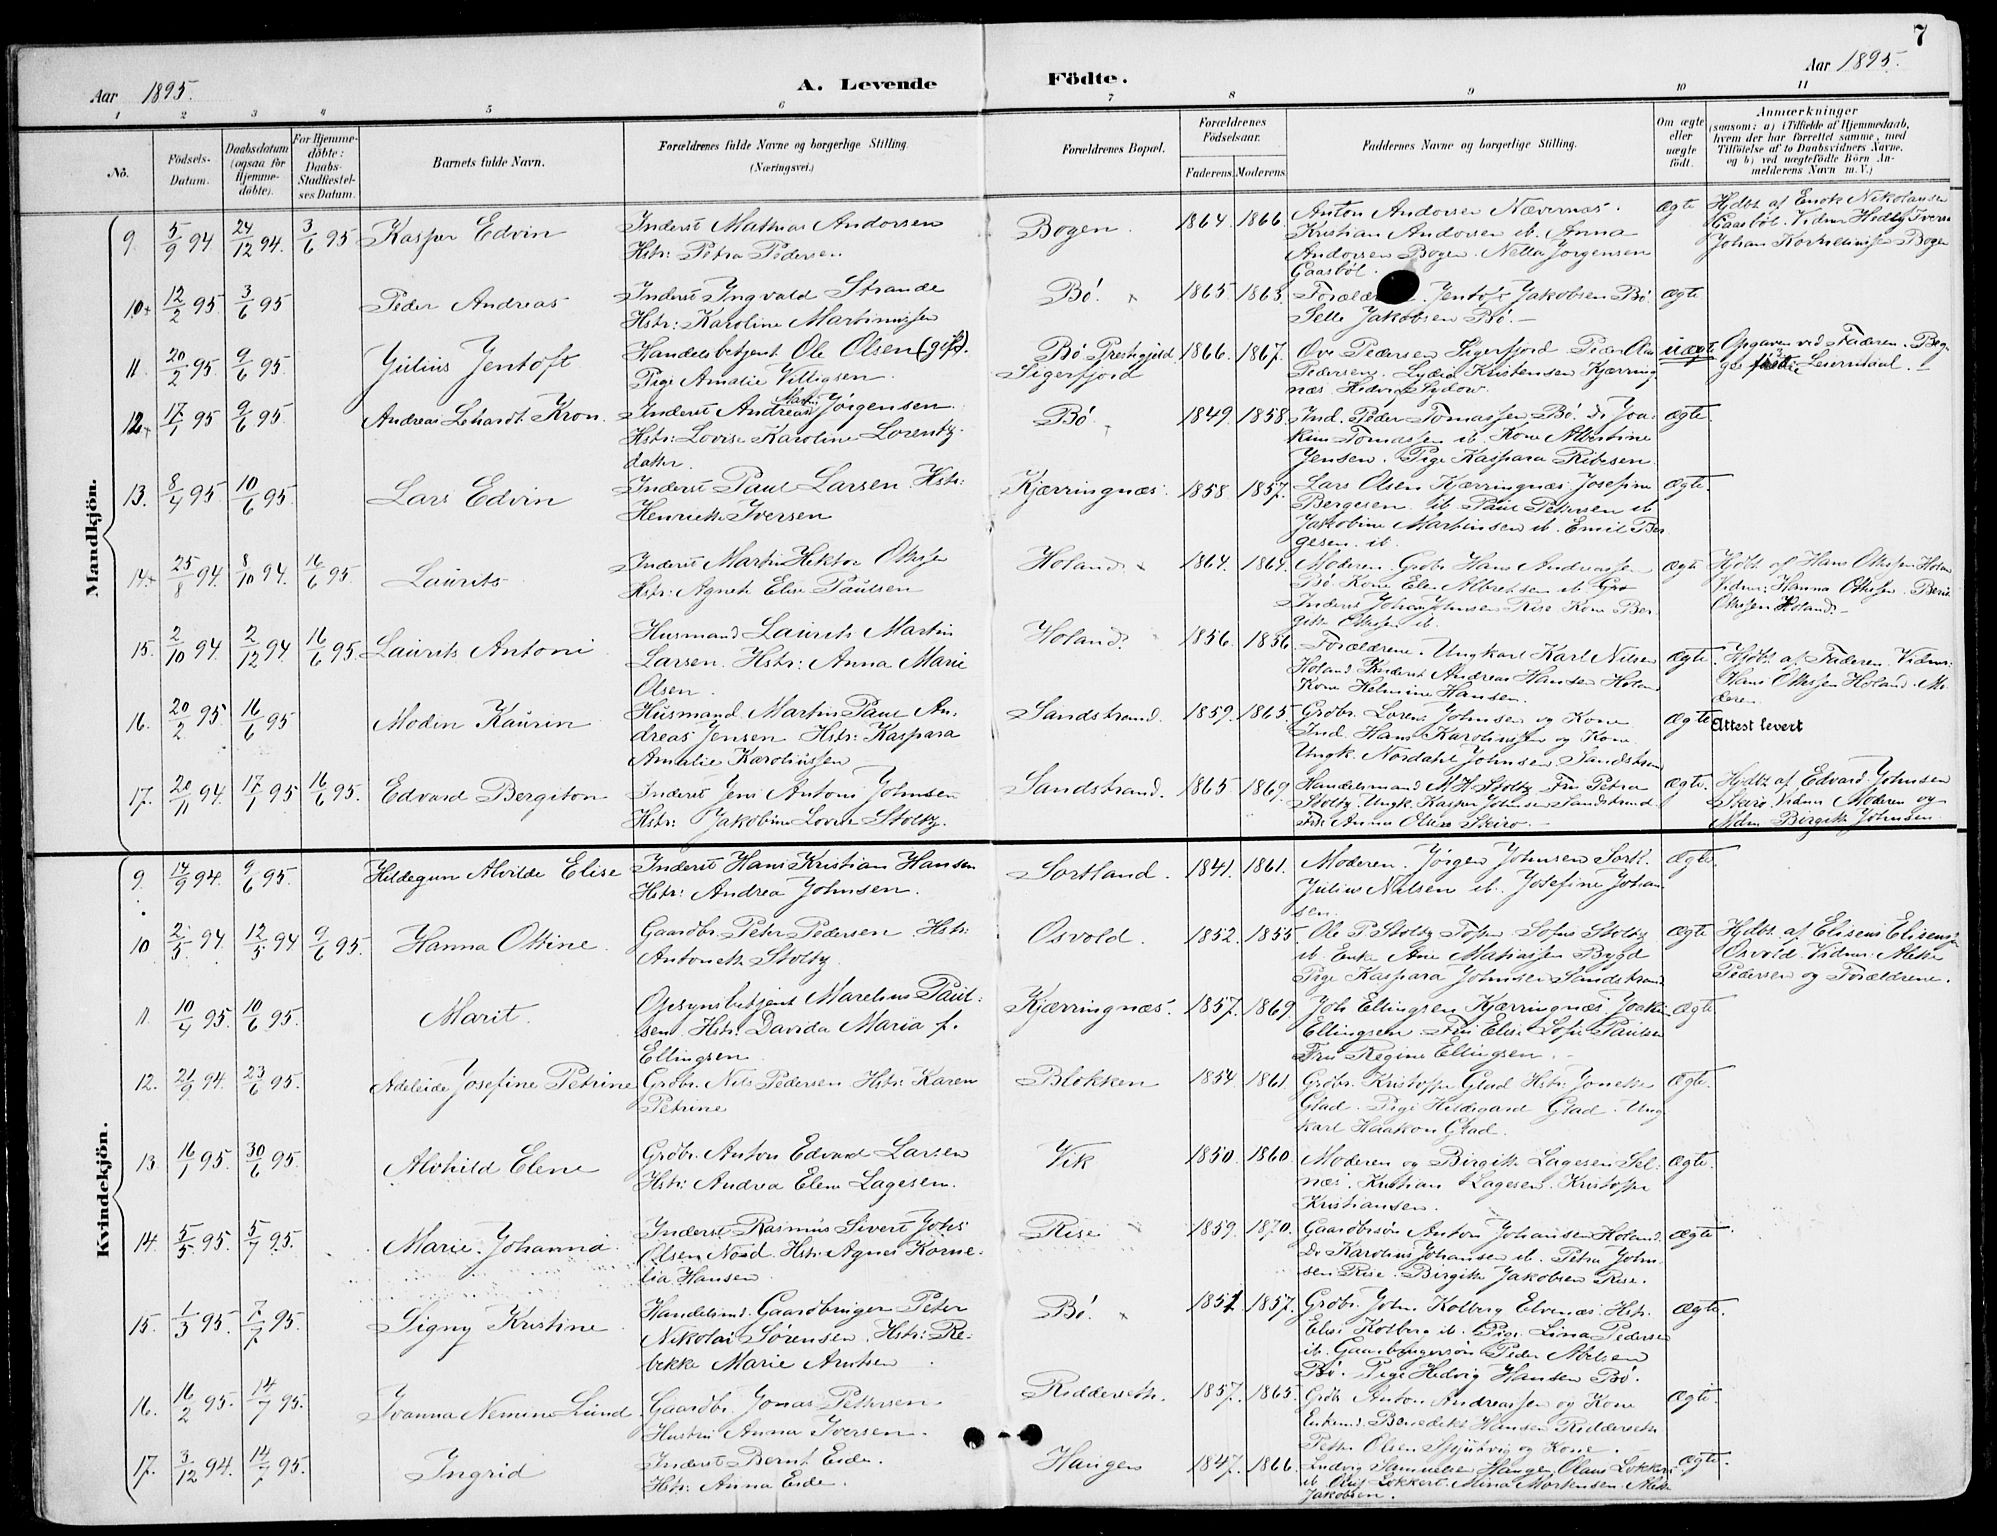 7
Aar 1895.
A. Levende Födte.
Aar 1895.
1 2 3 4 5 6 7 8 9 10 11
No.
Födsels-Datum.
Daabsdatum (ogsaa for Hjemme-döbte).
For Hjemme-döbte: Daabs Stadfæstel-ses Datum.
Barnets fulde Navn.
Forældrenes fulde Navne og borgerlige Stilling. (Næringsvei.)
Forældrenes Bopæl.
Forældrenes Födselsaar.
Faderens. Moderens.
Faddernes Navne og borgerlige Stilling.
Om ægte eller uægte født.
Anmærkninger
(saasom: a) i Tilfælde af Hjemmedaab,
hvem der har forrettet samme, med
Tilföielse af to Daabsvidners Navne,
og b) ved uegteføдte Börn An-
melderens Navn m. V.)
Mandkjön.
9. 5/9 94 24/12 94. 3/6 95 Kasper Edvin
Inderst Mathias Andorsen
Hstr: Petra Pedersen
Bogen. 1864. 1866.
Anton Andorsen Nævernæs.
Kristian Andorsen ib. Anna
Andorsen Bogen. Netta Jörgensen
Gaasböl.
Ægte
Hdbt. af Enok Nikolaisen
Gaasböl. Vidner Hedvig Iversen
Johan Kornelius­sen Bogen
10+ 12/2 95 3/6 95 Peder Andreas
Inderst Ingvald Strande
Hstr: Karoline Martinussen
Bö. 1865. 1863.
Jentoft Jakobsen Bö.
Jakobsen Bö.
Ægte
11. 20/2 95 9/6 95. Julius Jentoft
Handelsbetjent Ole Olsen (gift).
Pige Amalie Villigsen.
Bö Prestegjeld
Sigerfjord
1866. 1867.
Ove Pedersen Sigerfjord Peder Olai
Pedersen. Lydia Kristensen Kjærring-
næs. Hedvig Sydow.
uægte
Opgaven ved Faderen.
12+ 17/1 95 9/6 95. Andreas Lehardt Kron.
Inderst Andreas Martin Jörgensen.
Hstr: Lovise Karoline Lorentz-
datter.
Bö. 1849. 1858.
Ind. Peder Tomassen Bö. Do Joa-
kim Tomassen ib. Kone Albertine
Jensen. Pige Kaspara Ribesen.
Ægte.
13. 8/4 95 10/6 95. Lars Edvin
Inderst Paul Larsen Hstr:
Henrikke Iversen
Kjærringnæs. 1858. 1857.
Lars Olsen Kjærringnæs. Josefine
Bergesen. ib. Paul Pettersen ib
Jakobine Martinsen ib. Emil Ber-
gesen. ib.
Ægte.
14+ 25/8 94. 8/10 94. 16/6 95. Laurits
Inderst Martin Hektor Ottesen
Hstr: Agnete Elise Paulsen
Holand. 1864. 1864.
Moderen. Grdbr. Hans Andreassen
Bö. Kone Elen Albretsen ib
Inderst Johan Johnsen Rise Kone Ber-
gitte Ottesen ib.
Ægte
Hjdbt. af Hans Ottesen Holand
Vidner: Hanna Ottesen. Berit
Ottesen Holand.
15. 2/10 94. 2/12 94. 16/6 95. Laurits Antoni
Husmand Laurits Martin
Larsen. Hstr: Anna Marie
Olsen.
Holand. 1856. 1856.
Forældrene. Ungkarl Karl Nilsen
Holand. Inderst Andreas Hansen Holand
Kone Helmine Hansen.
Ægte.
Hjdbt. af Faderen. Vidner:
Hans Ottesen Holand. Mo-
deren.
16. 20/2 95 16/6 95. Modin Kaurin
Husmand. Martin Paul An-
dreas Jensen Hstr: Kaspara
Amalie Karoliussen
Sandstrand. 1859. 1865.
Grdbr. Lorens Johnsen og Kone
Ind. Hans Karoliussen og Kone
Ungk. Nordahl Johnsen. Sandstrand
Ægte
Attest levert
17. 20/11 94. 17/1 95 16/6 95. Edvard Bergiton
Inderst Jens Antoni Johnsen
Hstr: Jakobine Lovise Stoltz.
Sandstrand. 1865 1869.
Handelsmand M. H. Stoltz. Fru Petra
Stoltz. Ungk. Kasper Johnsen Sandstrand.
Frk Anna Olsen Skiro.
Ægte.
Hjdbt. af Edvard Johnsen
Skiro. Vidner Moderen og
Birgitte Johnsen
Kvindekjön.
9. 14/9 94. 9/6 95. Hildegun Alvilde Elise
Inderst Hans Kristian Hansen
Hstr: Andrea Johnsen.
Sortland. 1841. 1861.
Moderen. Jörgen Johnsen Sortl.
Julius Nilsen ib. Josefine Johan-
sen.
Ægte.
10 2/5 94. 12/5 94 9/6 95. Hanna Ottine.
Gaardbr. Peter Pedersen Hstr:
Antonette Stoltz.
Osvold. 1852. 1855.
Ole P Stoltz Sofus Stoltz
ib. Enke Ane Matiassen Bygd
Pige Kaspara Johnsen Sandstrand
Ægte
Hjdbt. af Eliseus Eliseusen
Osvold. Vidner:
Pedersen og Forældrene.
11 10/4 95. 10/6 95. Marit.
Opsynsbetjent Marelius Paul-
sen. Hstr: Davida Maria f.
Ellingsen
Kjærringnæs. 1857. 1869.
Joh Ellingsen Kjærringnæs. Joakim
Ellingsen. Fru Elise Sofie Paulsen
Fru Regine Ellingsen.
Ægte.
12. 21/9 94. 23/6 95. Adeleide Josefine Petrine
Grdbr. Nils Pedersen Hstr: Karen
Petrine
Blokken 1854. 1861.
Grdbr. Kristoffer Glad Hstr: Jonette
Glad. Pige Hildegard Glad. Ung-
karl Haakon Glad.
Ægte.
13 16/1 95. 30/6 95. Alvhild Elene
Grdbr. Anton Edvard Larsen
Hstr: Andrea Elene Lagesen.
Vik 1850. 1860.
Moderen og Birgitte Lagesen Sel-
næs. Kristian Lagesen. Kristoffer
Kristiansen.
Ægte.
14. 5/5 95. 5/7 95. Marie Johanna.
Inderst Rasmus Sivert Johs
Olsen Nord. Hstr: Agnes Korne-
lia Hansen.
Rise 1859. 1870.
Gaardbrsön Anton Johansen Holand.
Do Karolius Johansen ib. Petra John-
sen Rise. Birgitte Jakobsen Rise.
Ægte.
15. 1/3 95. 7/7 95. Signy Kristine
Handelsmd. Gaardbruger Peter
Nikolai Sörensen. Hstr: Re-
bekke Marie Arntsen.
Bö. 1851. 1857.
Grdbr. John Kolberg Elvenæs. Hstr.
Elise Kolberg ib. Pige Lina Pedersen
ib. Gaardbrugersön Peder Abelsen
Bö. Pige Hedvig Hansen Bö.
Ægte.
16. 16/2 95. 14/7 95. Ivanna Nemine Lund
Gaardbr. Jonas Pettersen
Hustru Anna Iversen.
Riddersete. 1857. 1865.
Grdbr. Anton Andreassen og Kone
Enkemd. Benedikt Hansen Riddersete
Petter Olsen og Kone.
Ægte.
17. 3/12 94. 14/7 95. Ingrid
Inderst Bernt Eide.
Hstr: Anna Eide.
Haugen 1847. 1866.
Ludvig Hammelsen Haugen. Olaus Lokkert
ib. Oluf Lokkert. Mina Mortensen.
Jakobsen.
Ægte.